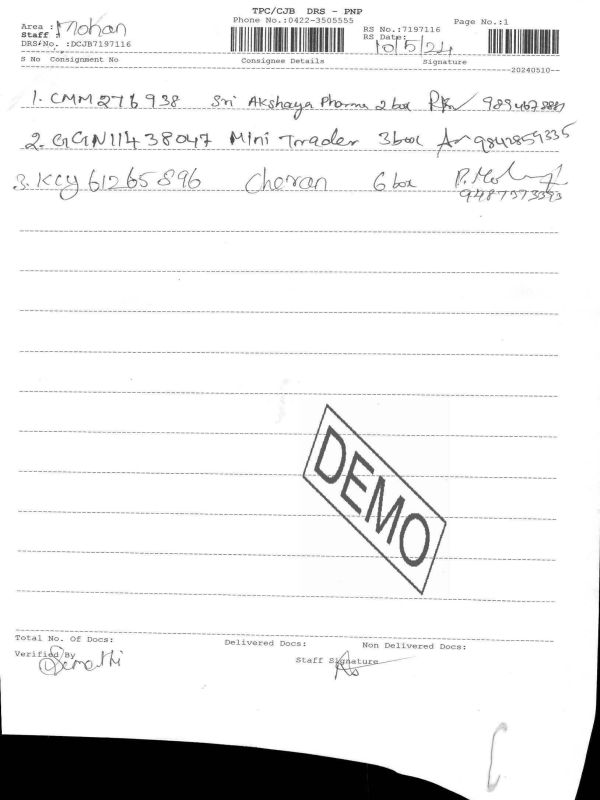 TPC/CJB DRS - PNP
Area : Mohan Phone No.:0422-3505555 Page No.:1
Staff : RS No.:7197116
DRS/No. :DCJB7197116 RS Date: 10/5/24
S No Consignment No Consignee Details Signature
20240510
1. CMM276938 Sri Akshaya Pharma 2 box
2. GGN11438047 Mini Trader 3 box 9842859335
3. KCY61265896 Cheran 6 box
9487573393
DEMO
Total No. Of Docs: Delivered Docs: Non Delivered Docs:
Verified/By Staff Signature